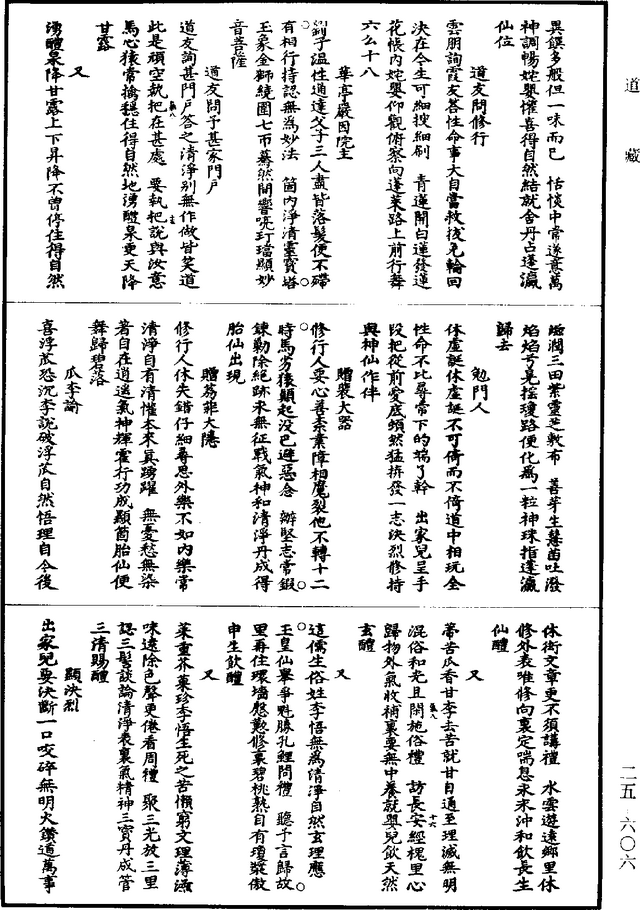 道藏
異饌多般但一味而已　恬惔中常遂意萬
神調暢姹嬰懽喜得自然結就金丹占蓬瀛
仙位
道友問修行
雲朋詢霞友荅性命事大自當救拔免輪回
決在今生可細搜細刷　青蓮開白蓮發蓮
花帳內姹嬰仰觀俯察向蓬萊路上前行舞
六么十八
華亭嚴因院主
劉子溫性通達父子二人盡皆落髮便不歸
有相行持認無為妙法　箇內淨清靈寶塔
玉象金獅繞圍七帀驀然開響喨玎璫顯妙
音菩薩
道友問予甚家門戶
道友詢甚門戶荅之清淨別無作做皆笑道
此是頑空執把在甚處　要執把說與汝意
馬心猿常擒穩住得自然地湧醴泉更天降
甘露
又
湧醴泉降甘露上下昇降不曾停住得自然
滋潤三田紫靈芝敷布　善芽生慧苗吐潑
焰焰号晃搖瓊路便化為一粒神珠指蓬瀛
歸去
勉門人
休虛誕休虛誕不可倚而不倚道中相玩全
性命不比尋常下的端了幹　出家兒呈手
段把從前愛底頓然猛拚發一志決烈修持
與神仙作伴
贈裴大器
修行人要心善柰業障相魔裂他不轉十二
時馬劣猿顛起沒巴避惡念　辦堅志常鍛
鍊勤除絕跡永無征戰氣神和清淨丹成得
胎仙出現
贈蒭菲大隱
修行人休失錯仔細尋思外樂不如內樂常
清淨自有清懽本來真踴躍　無憂愁無染
著自在逍遙氣神輝霍行功成顯箇胎仙便
舞歸碧落
瓜李諭
喜浮苽恐沉李說破浮苽自然悟理自今後
休術文章更不須講禮　水雲遊遠鄉里休
修外表唯修向裏定喘息永永沖和飲長生
仙醴
又
蔕苦瓜香甘李去苦就甘自通至理滅無明
混俗和光且開施俗禮　訪長安經槐里心
歸物外氣收補裏要無中養就嬰兒飲天然
玄醴
又
這儒生俗姓李悟無為清淨自然玄理應
玉皇仙舉爭魁勝孔鯉問禮　聽予言歸故
里再住環墻慇懃修裏碧桃熟自有瓊漿傲
申生飲醴
又
菜重芥菓珍李悟生死之苦懶窮文理薄滋
味遠除色聲更倦看周禮　聚三光放三里
認三髻談論清淨表裏氣精神三寶丹成管
三清賜醴
顯決烈
出家兒要決斷一口咬碎無明火鑽道萬事
二五-六〇六